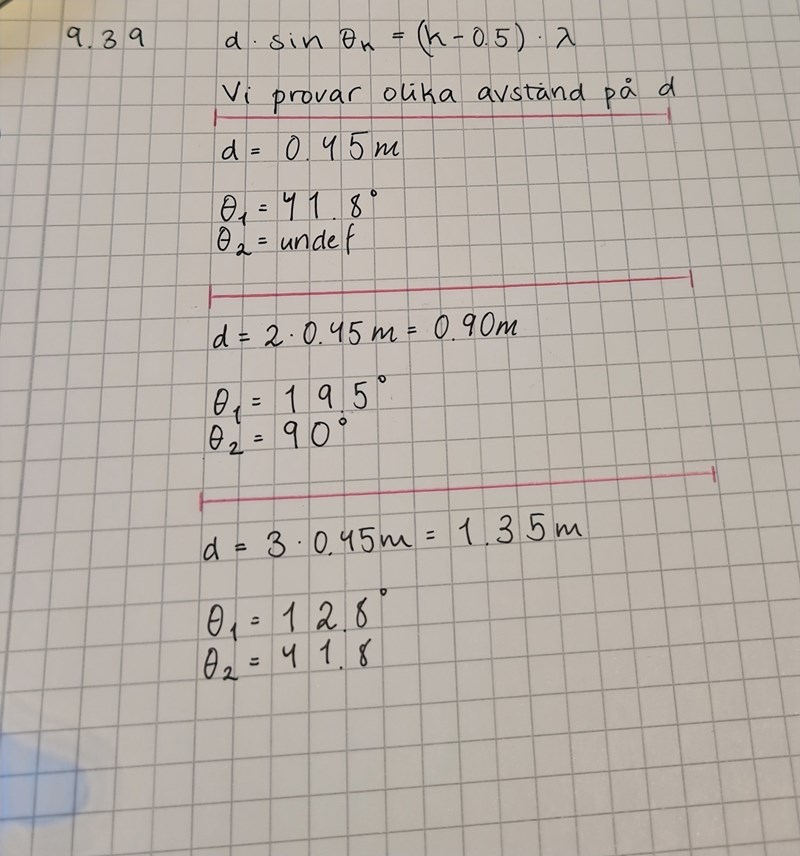 9.39 d · sin θₙ = (n - 0.5) · λ
Vi provar olika avstånd på d
d = 0.45m
θ₁ = 41.8°
θ₂ = undef
d = 2 · 0.45m = 0.90m
θ₁ = 19.5°
θ₂ = 90°
d = 3 · 0.45m = 1.35m
θ₁ = 12.8°
θ₂ = 41.8